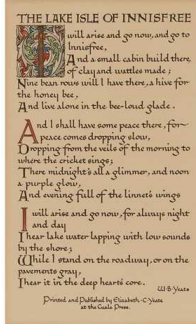 THE LAKE ISLE OF INNISFREE
I will arise and go now, and go to
Innisfree,
And a small cabin build there,
of clay and wattles made;
Nine bean rows will I have there, a hive for
the honey bee,
And live alone in the bee-loud glade.
And I shall have some peace there, for
peace comes dropping slow,
Dropping from the veils of the morning to
where the cricket sings;
There midnight's all a glimmer, and noon
a purple glow,
And evening full of the linnet's wings
I will arise and go now, for always night
and day
I hear lake water lapping with low sounds
by the shore;
While I stand on the roadway, or on the
pavements gray,
I hear it in the deep heart's core.
W·B·Yeats
Printed and Published by Elizabeth·C·Yeats
at the Cuala Press.